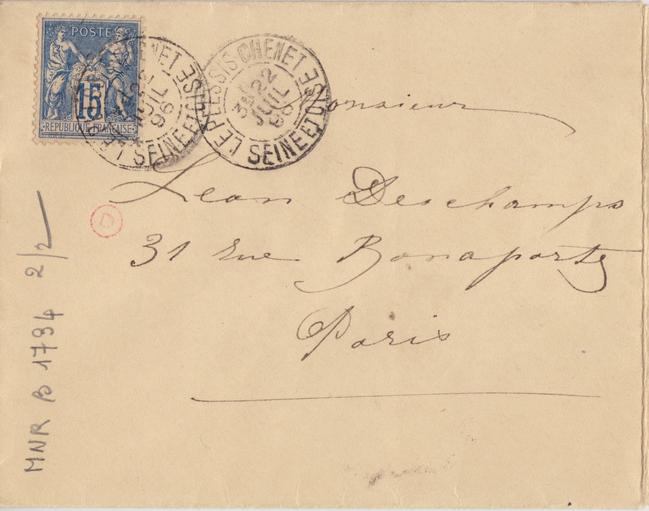 POSTE
15
REPUBLIQUE FRANÇAISE
LE PLESSIS CHENET
22
JUIL
96
SEINE ET OISE
LE PLESSIS CHENET
22
JUIL
96
SEINE ET OISE
Monsieur
Léon Deschamps
31 rue Bonaparte
Paris
D
MNR B 1794 2/2